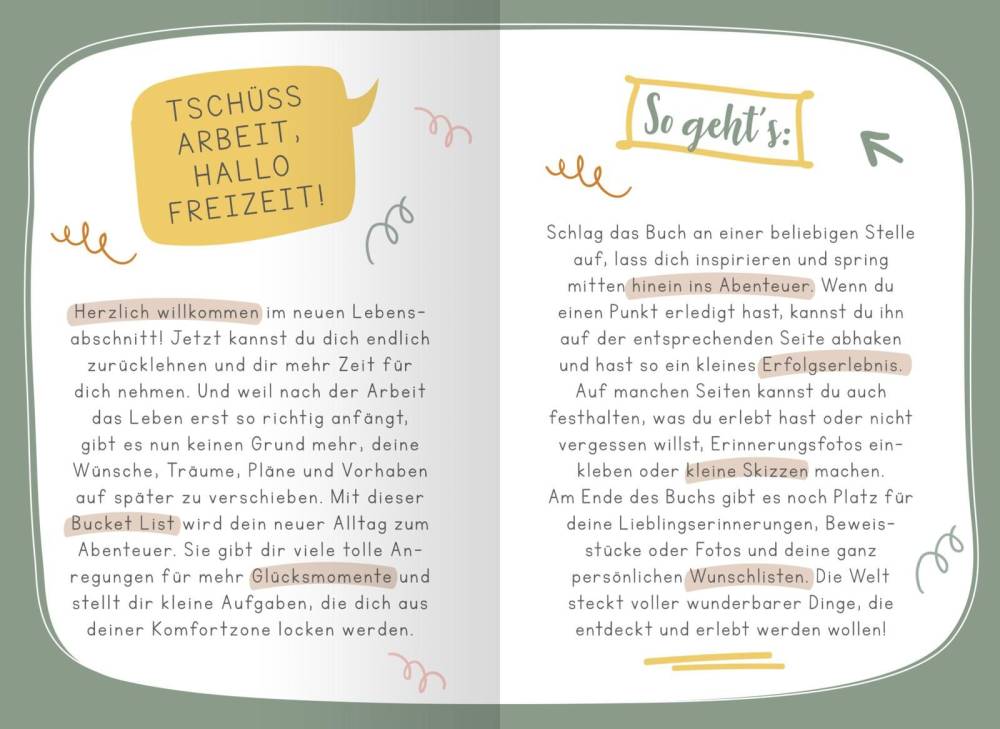 TSCHÜSS
ARBEIT,
HALLO
FREIZEIT!
Herzlich willkommen im neuen Lebens-
abschnitt! Jetzt kannst du dich endlich
zurücklehnen und dir mehr Zeit für
dich nehmen. Und weil nach der Arbeit
das Leben erst so richtig anfängt,
gibt es nun keinen Grund mehr, deine
Wünsche, Träume, Pläne und Vorhaben
auf später zu verschieben. Mit dieser
Bucket List wird dein neuer Alltag zum
Abenteuer. Sie gibt dir viele tolle An-
regungen für mehr Glücksmomente und
stellt dir kleine Aufgaben, die dich aus
deiner Komfortzone locken werden.
So geht's:
Schlag das Buch an einer beliebigen Stelle
auf, lass dich inspirieren und spring
mitten hinein ins Abenteuer. Wenn du
einen Punkt erledigt hast, kannst du ihn
auf der entsprechenden Seite abhaken
und hast so ein kleines Erfolgserlebnis.
Auf manchen Seiten kannst du auch
festhalten, was du erlebt hast oder nicht
vergessen willst, Erinnerungsfotos ein-
kleben oder kleine Skizzen machen.
Am Ende des Buchs gibt es noch Platz für
deine Lieblingserinnerungen, Beweis-
stücke oder Fotos und deine ganz
persönlichen Wunschlisten. Die Welt
steckt voller wunderbarer Dinge, die
entdeckt und erlebt werden wollen!